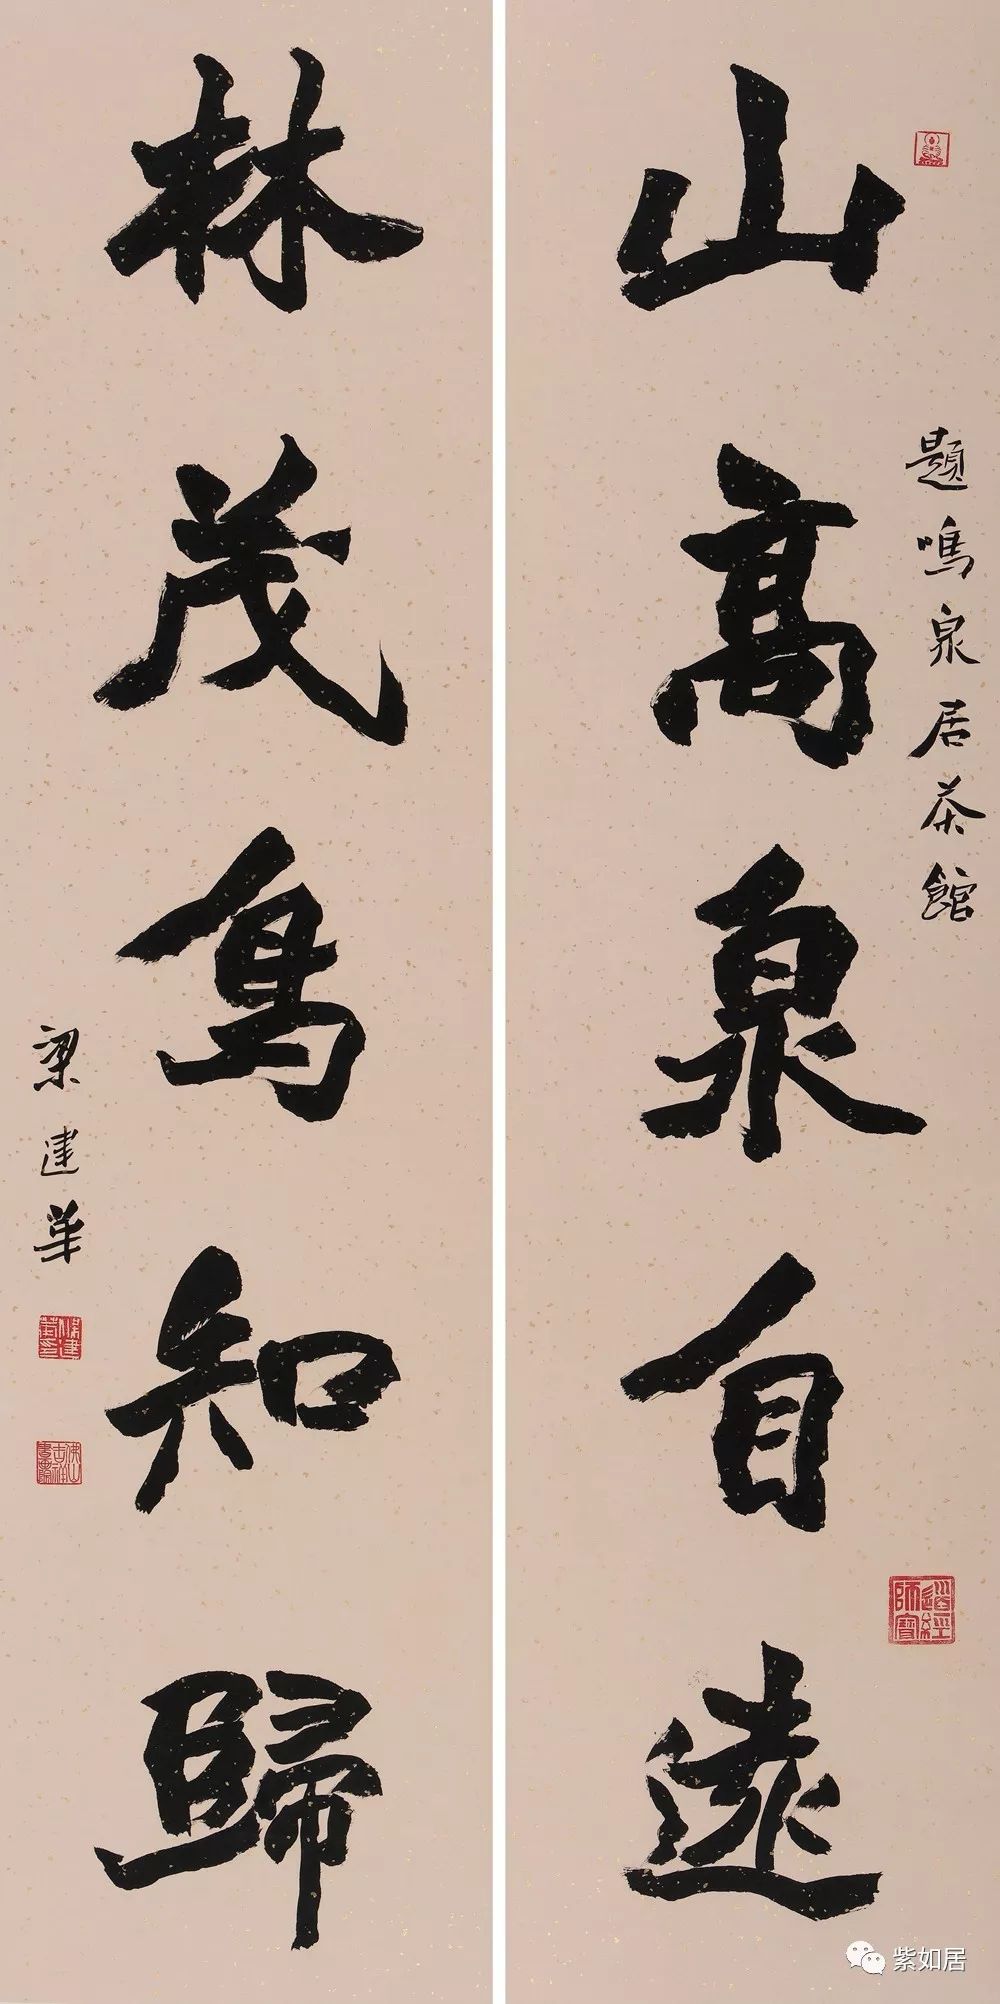 題鳴泉居茶館
山高泉自遠
林茂鳥知歸
梁建華
紫如居